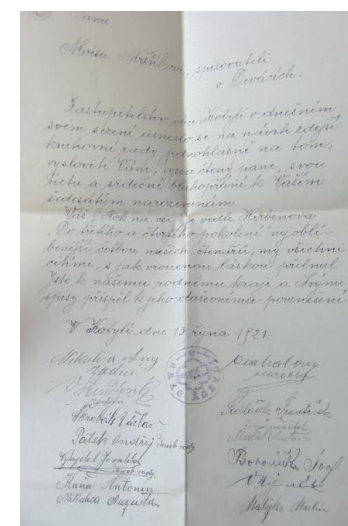 Aloisu Mrštíkovi, spisovateli
v Divácích.
Zastupitelstvo obce Kobylí v dnešním
svém sezení usneslo se na návrh zdejší
knihovní rady jednohlasně na tom,
vysloviti Vám, vysoce ctěný pane, svou
úctu a srdečné blahopřání k Vašim
šedesátým narozeninám.
Váš „Rok na vsi" je vedle Herbenova
„Do třetího a čtvrtého pokolení" nejoblí-
benější četbou našich čtenářů, my všichni
cítíme, s jak vroucnou láskou přilnul
jste k našemu rodnému kraji a svými
spisy přispěl k jeho duševnímu povznesení
V Kobylí dne 13. října 1921
Mikulica Aug
radní
starosta
Sedláček František
Válek Ondřej
Borovička Josef
Kaňa Antonín
Matýka Martin
Mikulica Augustin